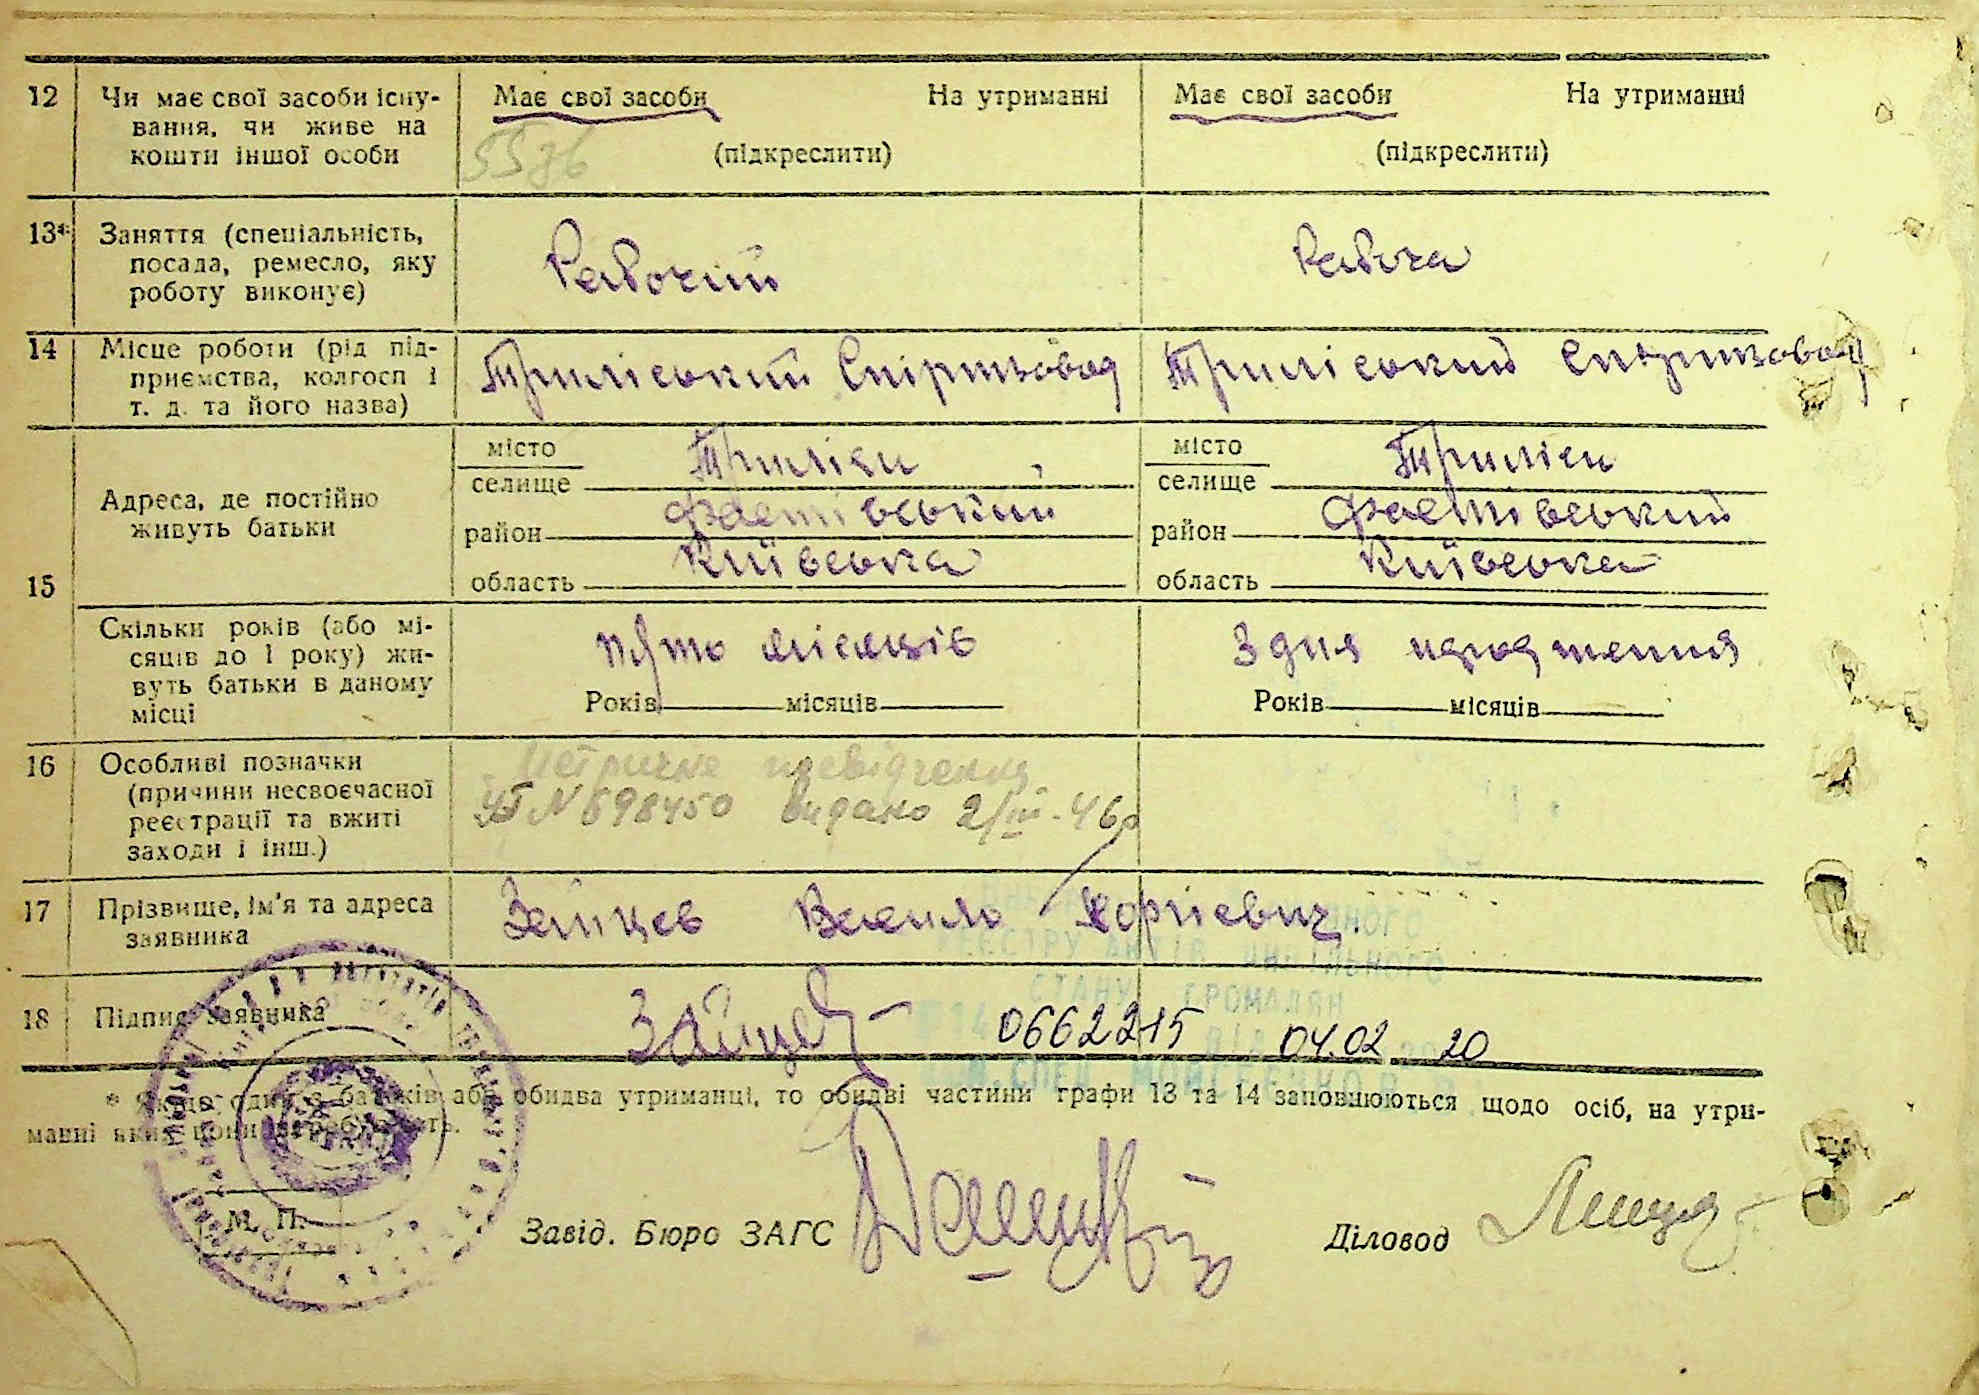 12 Чи має свої засоби існу-
вання, чи живе на
кошти іншої особи
Має свої засоби На утриманні
(підкреслити)
Має свої засоби На утриманні
(підкреслити)
5576
13* Заняття (спеціальність,
посада, ремесло, яку
роботу виконує)
Рабочий
Рабоча
14 Місце роботи (рід під-
приємства, колгосп і
т. д. та його назва)
Триліський Спіртзовод
Триліський Спіртзовод
15 Адреса, де постійно
живуть батьки
місто
селище Триліси
район Фастівський
область Київська
місто
селище Триліси
район Фастівський
область Київська
Скільки років (або мі-
сяців до 1 року) жи-
вуть батьки в даному
місці
пять місяців
Років місяців
З дня народження
Років місяців
16 Особливі позначки
(причини несвоєчасної
реєстрації та вжиті
заходи і інш.)
Метричне посвідчення
N 698450 видано 2/III-46р
17 Прізвище, ім'я та адреса
заявника
Зайцев Василь
18 Підпис заявника
Зайцев
0662215 04.02 20
РЕЄСТРУ АКТІВ ЦИВІЛЬНОГО
СТАНУ ГРОМАДЯН
* Якщо один з батьків або обидва утриманці, то обидві частини графи 13 та 14 заповнюються щодо осіб, на утри-
манні яких вони перебувають.
М. П.
Завід. Бюро ЗАГС
Діловод